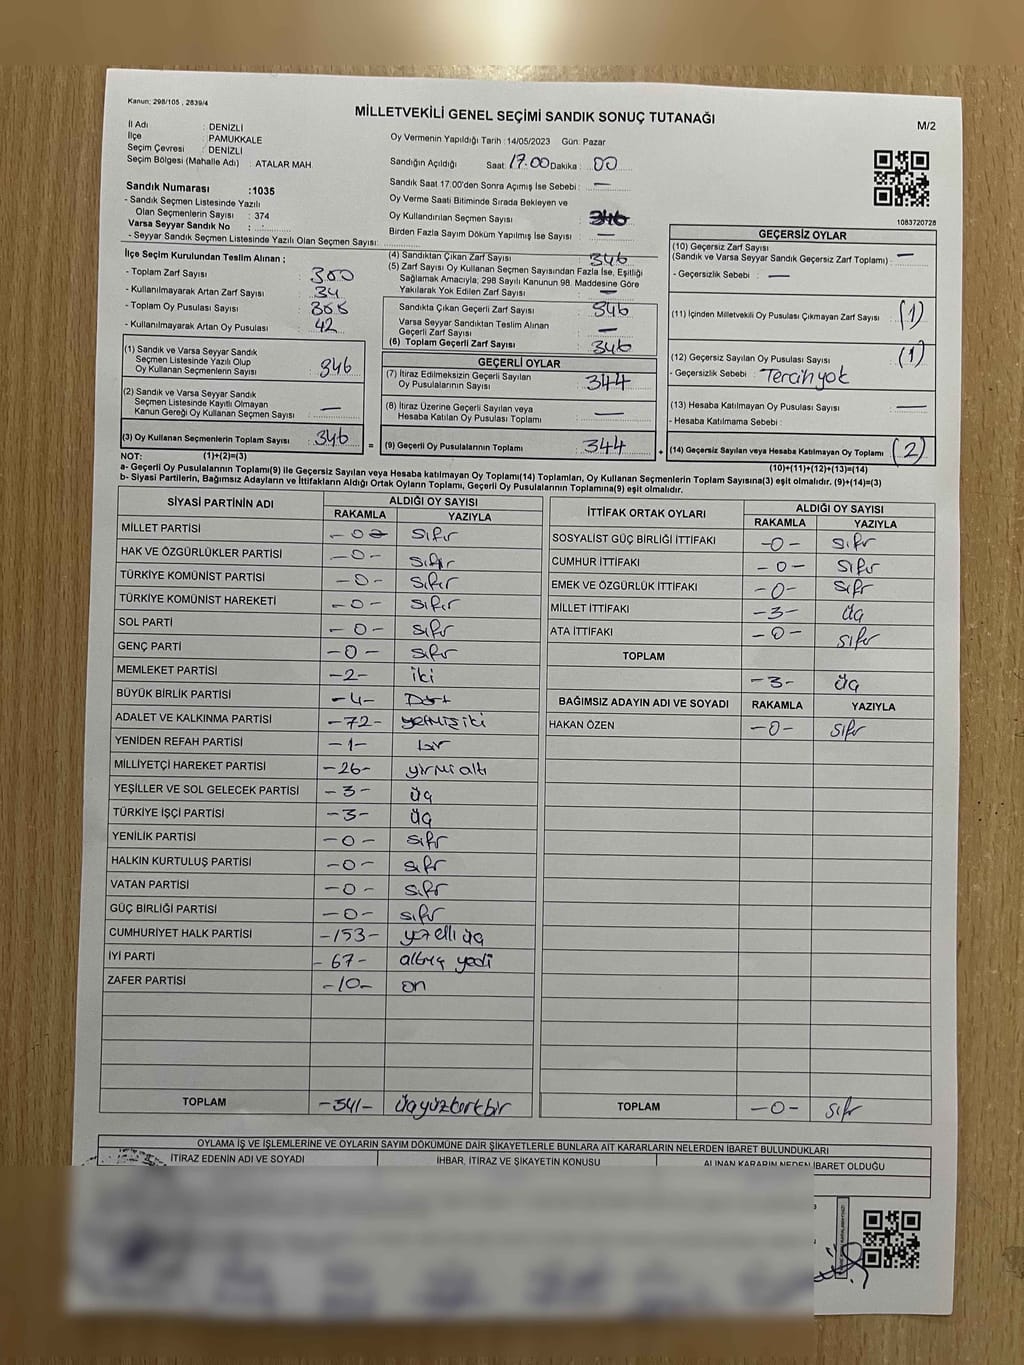 Kanun; 298/105 , 2839/4
MİLLETVEKİLİ GENEL SEÇİMİ SANDIK SONUÇ TUTANAĞI
M/2
İl Adı : DENİZLİ
İlçe : PAMUKKALE
Seçim Çevresi : DENİZLİ
Seçim Bölgesi (Mahalle Adı) : ATALAR MAH.
Sandık Numarası :1035
- Sandık Seçmen Listesinde Yazılı
Olan Seçmenlerin Sayısı : 374
Varsa Seyyar Sandık No :
- Seyyar Sandık Seçmen Listesinde Yazılı Olan Seçmen Sayısı:
Oy Vermenin Yapıldığı Tarih :14/05/2023 Gün: Pazar
Sandığın Açıldığı Saat: 17.00 Dakika : 00
Sandık Saat 17.00'den Sonra Açımış İse Sebebi : —
Oy Verme Saati Bitiminde Sırada Bekleyen ve
Oy Kullandırılan Seçmen Sayısı :
Birden Fazla Sayım Döküm Yapılmış İse Sayısı : —
1083720728
İlçe Seçim Kurulundan Teslim Alınan ;
- Toplam Zarf Sayısı : 380
- Kullanılmayarak Artan Zarf Sayısı : 34
- Toplam Oy Pusulası Sayısı :
- Kullanılmayarak Artan Oy Pusulası : 42
(1) Sandık ve Varsa Seyyar Sandık
Seçmen Listesinde Yazılı Olup
Oy Kullanan Seçmenlerin Sayısı : 346
(2) Sandık ve Varsa Seyyar Sandık
Seçmen Listesinde Kayıtlı Olmayan
Kanun Gereği Oy Kullanan Seçmen Sayısı : —
(3) Oy Kullanan Seçmenlerin Toplam Sayısı : 346
(4) Sandıktan Çıkan Zarf Sayısı : 346
(5) Zarf Sayısı Oy Kullanan Seçmen Sayısından Fazla İse, Eşitliği
Sağlamak Amacıyla, 298 Sayılı Kanunun 98. Maddesine Göre
Yakılarak Yok Edilen Zarf Sayısı : —
Sandıkta Çıkan Geçerli Zarf Sayısı : 346
Varsa Seyyar Sandıktan Teslim Alınan
Geçerli Zarf Sayısı : —
(6) Toplam Geçerli Zarf Sayısı : 346
GEÇERLİ OYLAR
(7) İtiraz Edilmeksizin Geçerli Sayılan
Oy Pusulalarının Sayısı : 344
(8) İtiraz Üzerine Geçerli Sayılan veya
Hesaba Katılan Oy Pusulası Toplamı : —
= (9) Geçerli Oy Pusulalarının Toplamı : 344
GEÇERSİZ OYLAR
(10) Geçersiz Zarf Sayısı
(Sandık ve Varsa Seyyar Sandık Geçersiz Zarf Toplamı) : —
- Geçersizlik Sebebi : —
(11) İçinden Milletvekili Oy Pusulası Çıkmayan Zarf Sayısı : (1)
(12) Geçersiz Sayılan Oy Pusulası Sayısı : (1)
- Geçersizlik Sebebi : Tercih yok
(13) Hesaba Katılmayan Oy Pusulası Sayısı : —
- Hesaba Katılmama Sebebi :
+ (14) Geçersiz Sayılan veya Hesaba Katılmayan Oy Toplamı : (2)
NOT: (1)+(2)=(3)
(10)+(11)+(12)+(13)=(14)
a- Geçerli Oy Pusulalarının Toplamı(9) ile Geçersiz Sayılan veya Hesaba katılmayan Oy Toplamı(14) Toplamları, Oy Kullanan Seçmenlerin Toplam Sayısına(3) eşit olmalıdır. (9)+(14)=(3)
b- Siyasi Partilerin, Bağımsız Adayların ve İttifakların Aldığı Ortak Oyların Toplamı, Geçerli Oy Pusulalarının Toplamına(9) eşit olmalıdır.
SİYASİ PARTİNİN ADI ALDIĞI OY SAYISI
RAKAMLA YAZIYLA
MİLLET PARTİSİ -0- sıfır
HAK VE ÖZGÜRLÜKLER PARTİSİ -0- sıfır
TÜRKİYE KOMÜNİST PARTİSİ -0- sıfır
TÜRKİYE KOMÜNİST HAREKETİ -0- sıfır
SOL PARTİ -0- sıfır
GENÇ PARTİ -0- sıfır
MEMLEKET PARTİSİ -2- iki
BÜYÜK BİRLİK PARTİSİ -4- Dört
ADALET VE KALKINMA PARTİSİ -72- yetmişiki
YENİDEN REFAH PARTİSİ -1- bir
MİLLİYETÇİ HAREKET PARTİSİ -26- yirmi altı
YEŞİLLER VE SOL GELECEK PARTİSİ -3- üç
TÜRKİYE İŞÇİ PARTİSİ -3- üç
YENİLİK PARTİSİ -0- sıfır
HALKIN KURTULUŞ PARTİSİ -0- sıfır
VATAN PARTİSİ -0- sıfır
GÜÇ BİRLİĞİ PARTİSİ -0- sıfır
CUMHURİYET HALK PARTİSİ -153- yüz elli üç
İYİ PARTİ -67- altmış yedi
ZAFER PARTİSİ -10- on
TOPLAM -341- üçyüzkırkbir
İTTİFAK ORTAK OYLARI ALDIĞI OY SAYISI
RAKAMLA YAZIYLA
SOSYALİST GÜÇ BİRLİĞİ İTTİFAKI -0- sıfır
CUMHUR İTTİFAKI -0- sıfır
EMEK VE ÖZGÜRLÜK İTTİFAKI -0- sıfır
MİLLET İTTİFAKI -3- üç
ATA İTTİFAKI -0- sıfır
TOPLAM -3- üç
BAĞIMSIZ ADAYIN ADI VE SOYADI RAKAMLA YAZIYLA
HAKAN ÖZEN -0- sıfır
TOPLAM -0- sıfır
OYLAMA İŞ VE İŞLEMLERİNE VE OYLARIN SAYIM DÖKÜMÜNE DAİR ŞİKAYETLERLE BUNLARA AİT KARARLARIN NELERDEN İBARET BULUNDUKLARI
İTİRAZ EDENİN ADI VE SOYADI İHBAR, İTİRAZ VE ŞİKAYETİN KONUSU ALINAN KARARIN NEDEN İBARET OLDUĞU